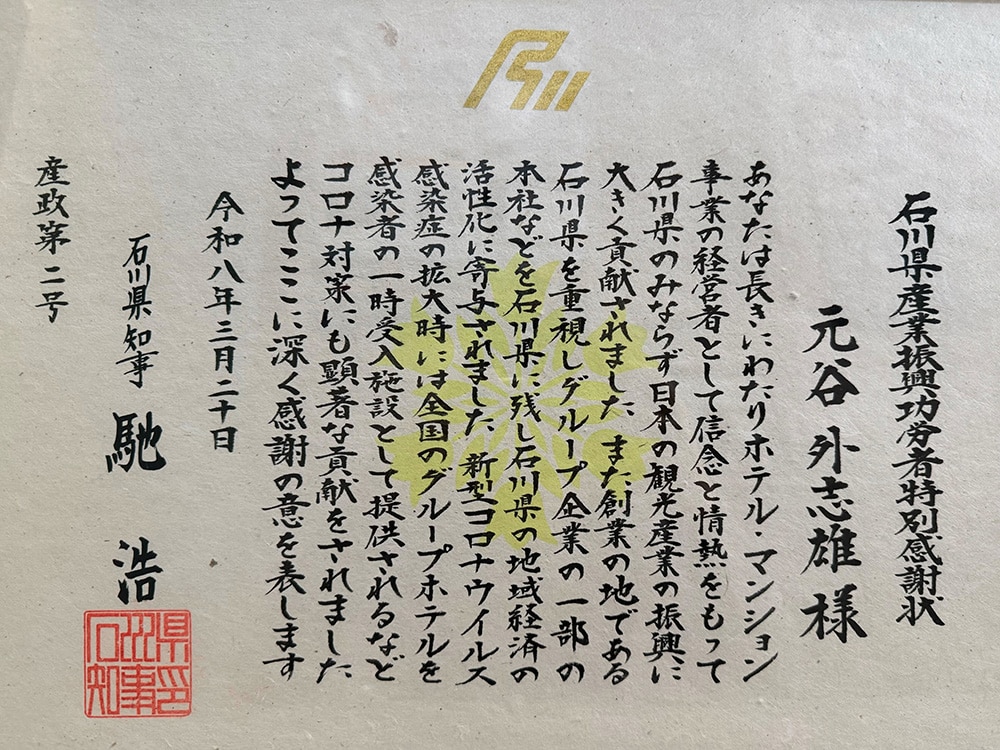 石川県産業振興功労者特別感謝状
元谷外志雄様
あなたは長きにわたりホテル・マンション
事業の経営者として信念と情熱をもって
石川県のみならず日本の観光産業の振興に
大きく貢献されました また創業の地である
石川県を重視しグループ企業の一部の
本社などを石川県に残し石川県の地域経済の
活性化に寄与されました 新型コロナウイルス
感染症の拡大時には全国のグループホテルを
感染者の一時受入施設として提供されるなど
コロナ対策にも顕著な貢献をされました
よってここに深く感謝の意を表します
令和八年三月二十日
石川県知事 馳 浩
県印
石川
知事
産政第二号